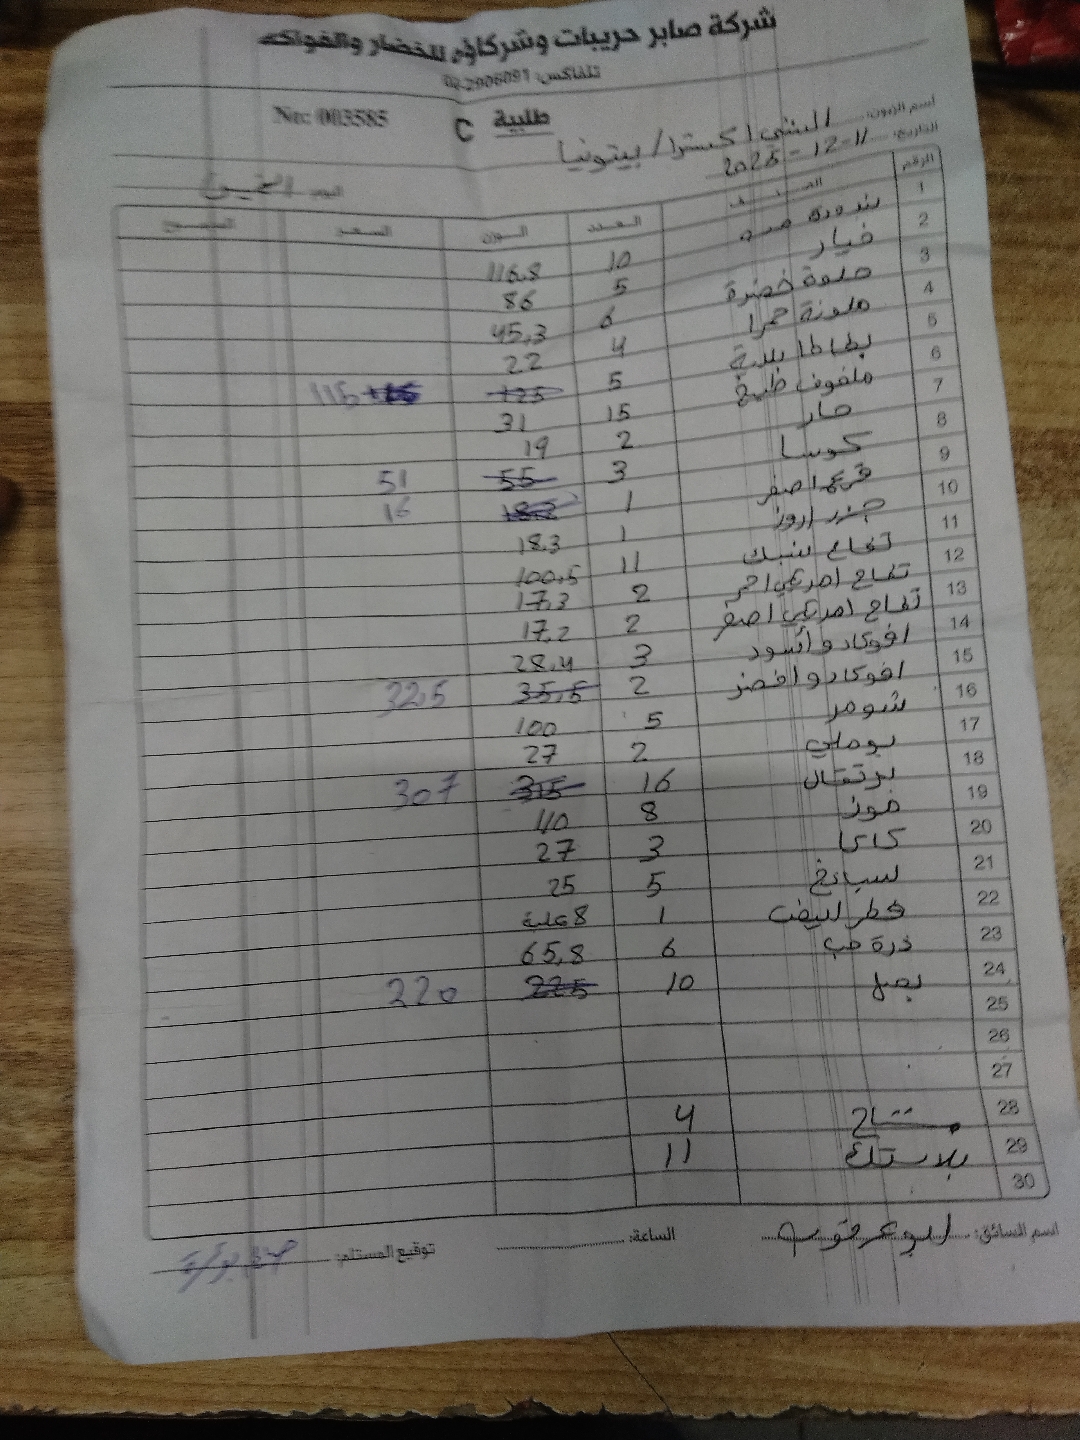 شركة صابر حريبات وشركاؤه للخضار والفواكه
تلفاكس: 02-2906091
Nr: 003585
طلبية C
اسم الزبون: اكسترا / بيتونيا
التاريخ: 11-12-2025
اليوم: الخميس
الرقم الصنف العدد الوزن السعر المجموع
1 بندورة 10 116.8
2 خيار 5 86
3 حلوة خضرة 6 45.3
4 ملونة حمرا 4 22
5 بطاطا 5 125 115
6 ملفوف طبخ 15 31
7 حار 2 19
8 كوسا 3 55 51
9 قرع اصفر 1 16
10 جزر اروز 1 18.3
11 تفاح 11 100.5
12 تفاح امريكي احمر 2 17.3
13 تفاح امريكي اصفر 2 17.2
14 افوكادو أسود 3 28.4
15 افوكادو اخضر 2 35.5 32.5
16 شومر 5 100
17 بوملي 2 27
18 برتقال 16 315 307
19 موز 8 110
20 كاكا 3 27
21 سبانخ 5 25
22 فطر ابيض 1 8 علب
23 ذرة حب 6 65.8
24 بصل 10 225 220
25
26
27
28 مشتاح 4
29 بلاستك 11
30
اسم السائق: ابو عرقوب
الساعة:
توقيع المستلم: